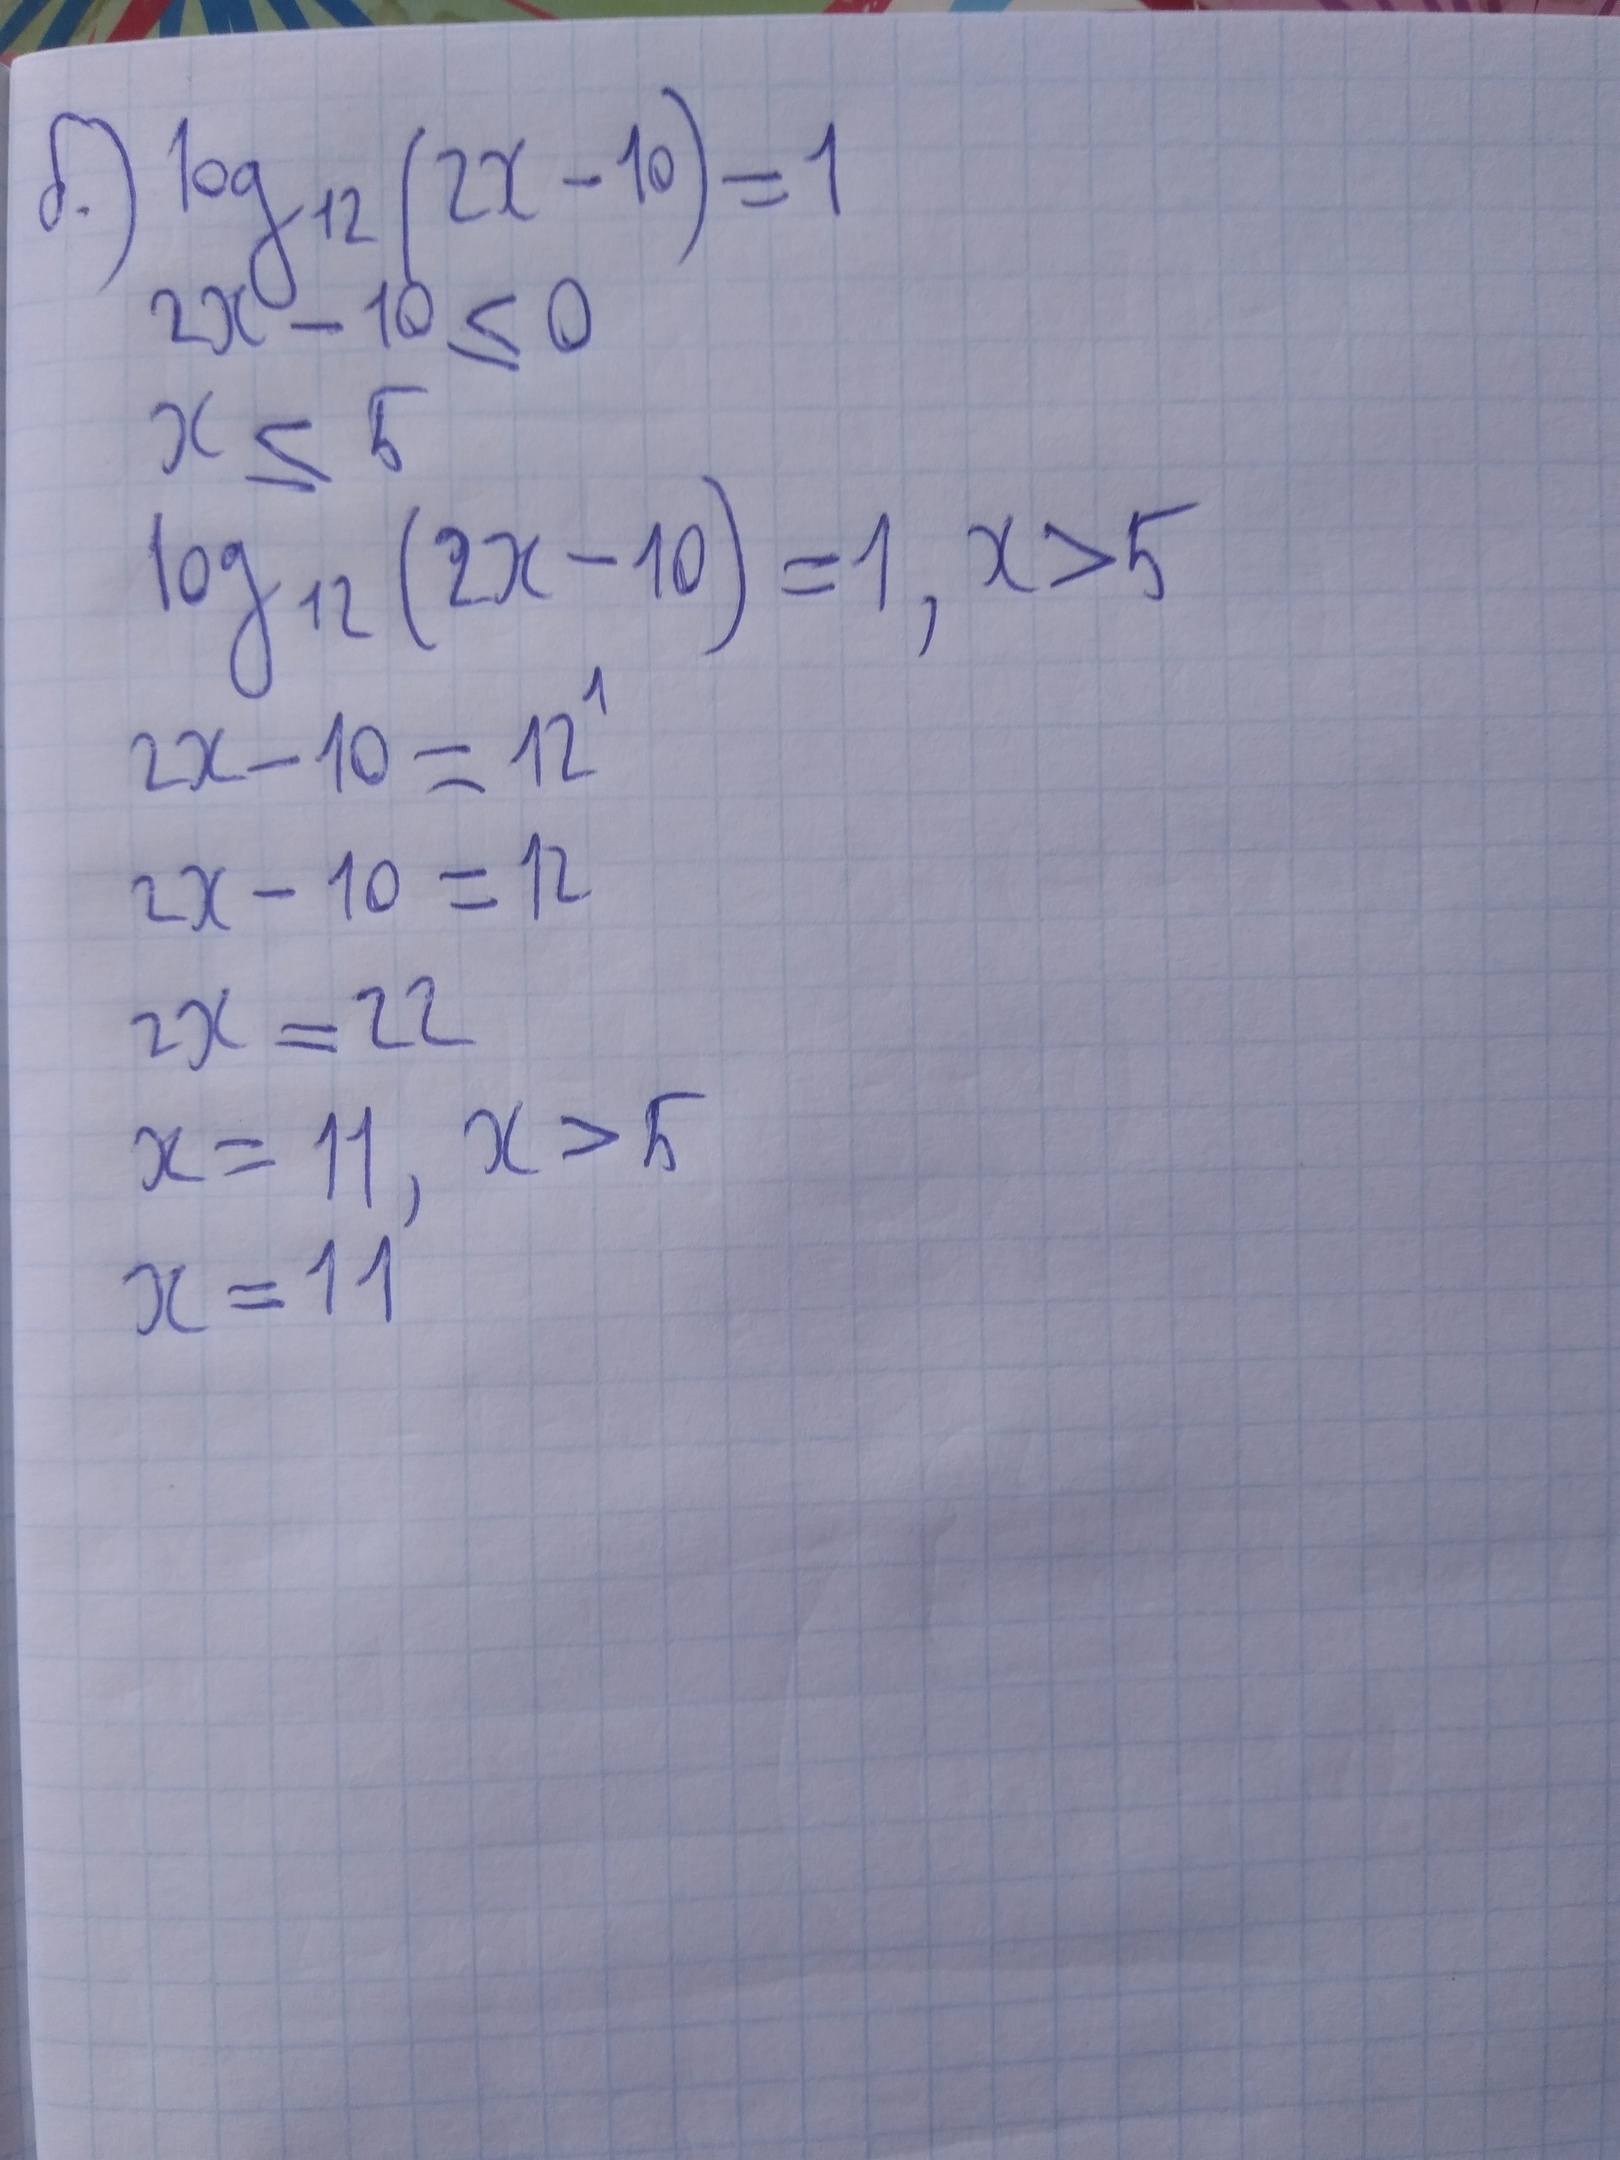 б.) log₁₂(2x-10)=1
2x-10≤0
x≤5
log₁₂(2x-10)=1, x>5
2x-10=12¹
2x-10=12
2x=22
x=11, x>5
x=11